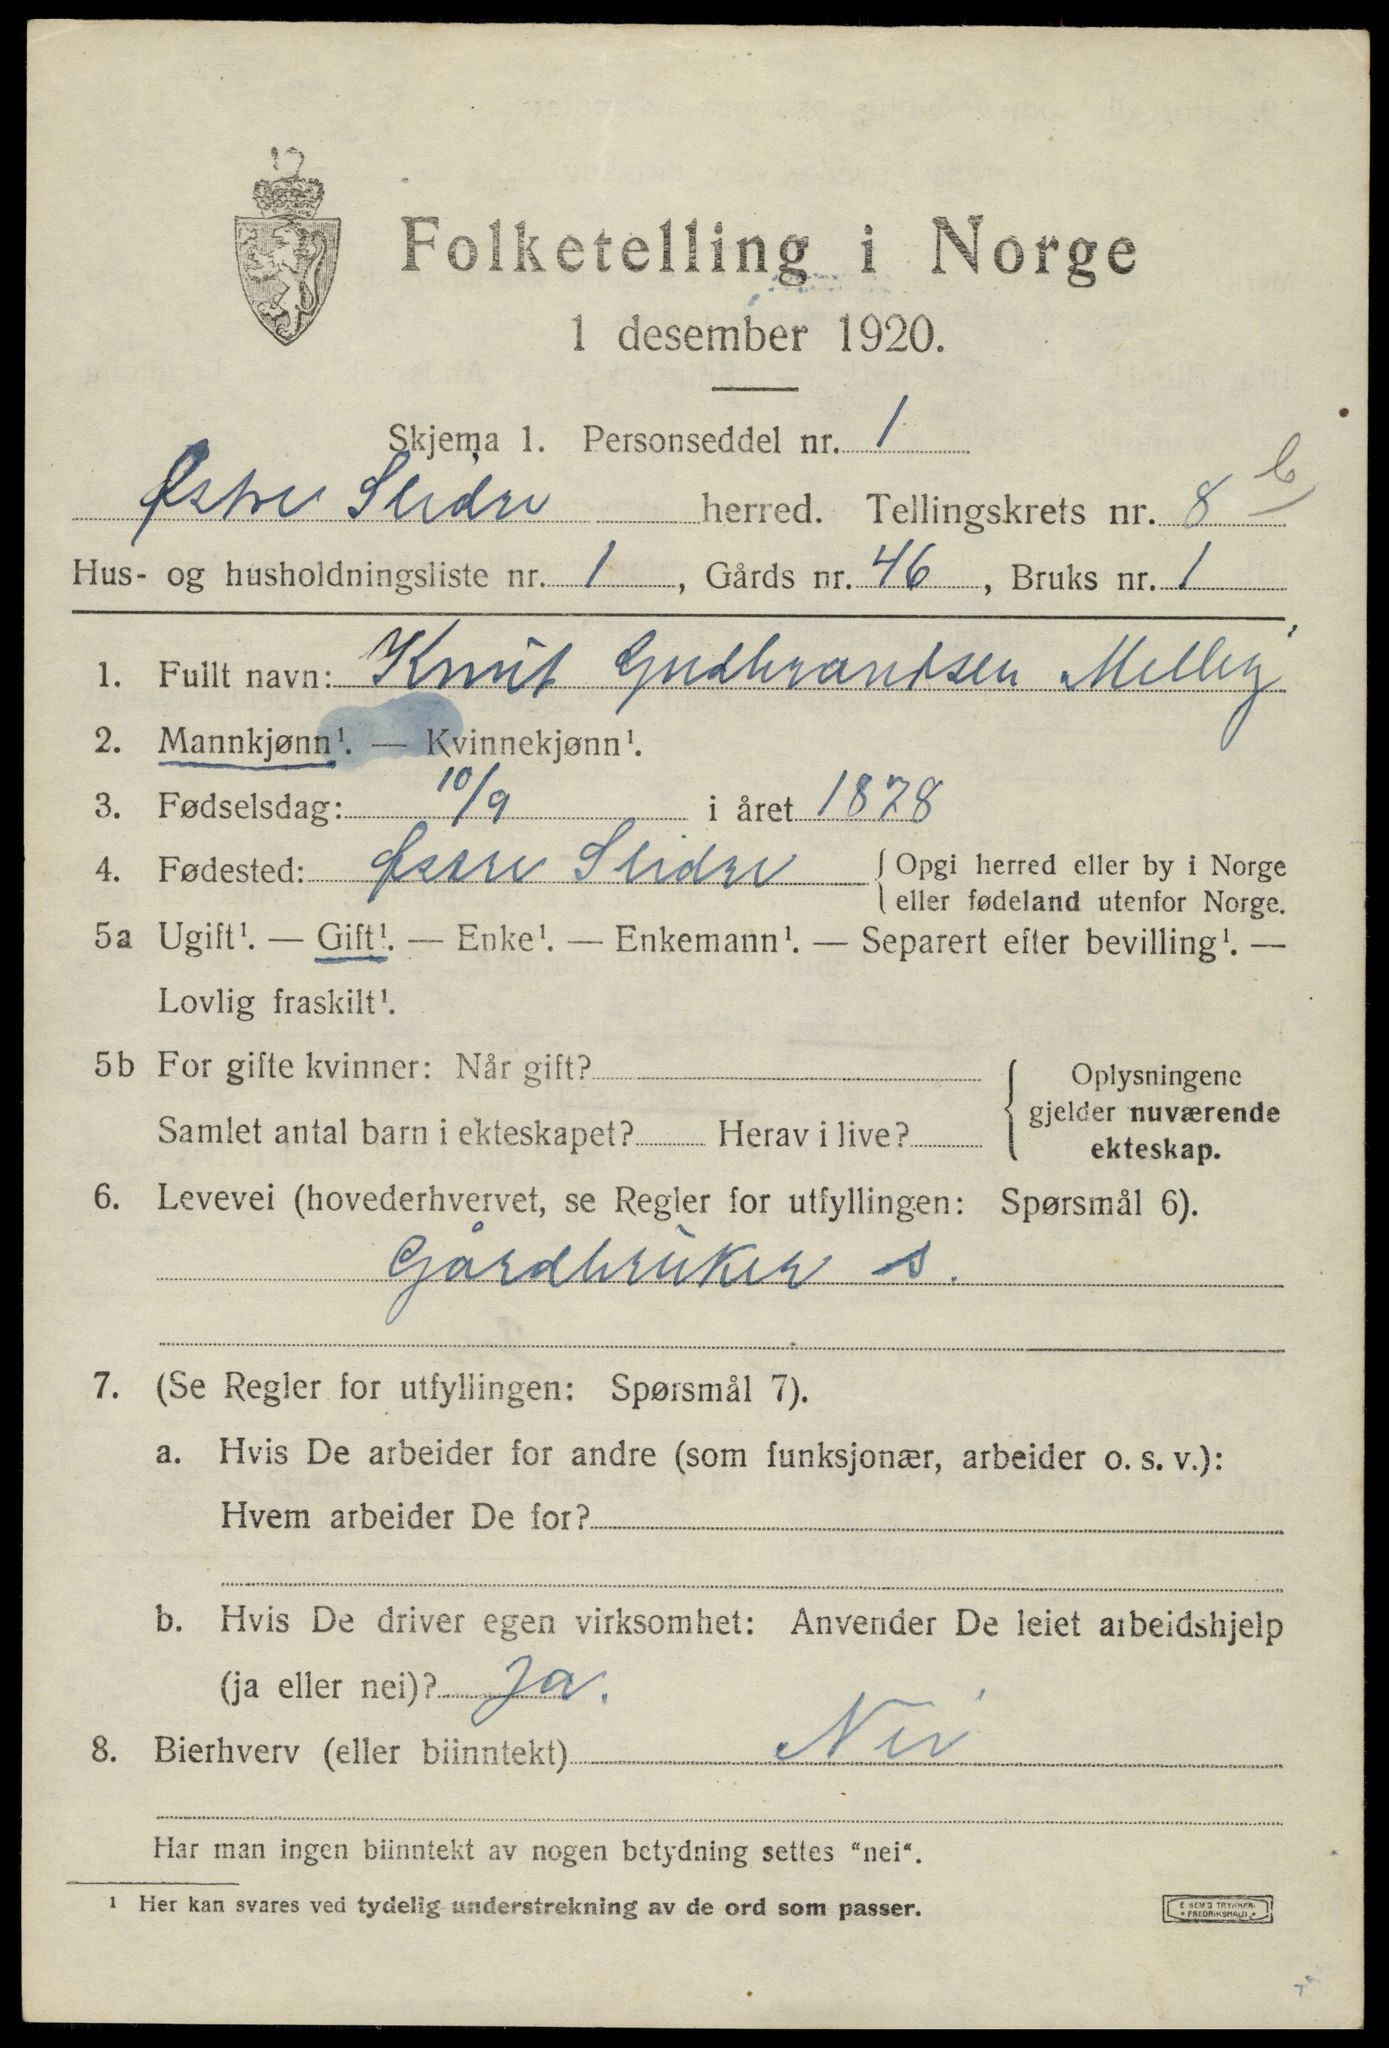 Folketelling i Norge
1 desember 1920.
Skjema 1. Personseddel nr. 1
Østre Slidre herred. Tellingskrets nr. 8 b
Hus- og husholdningsliste nr. 1, Gårds nr. 46, Bruks nr. 1
1. Fullt navn: Knut Gudbrandsen Melby
2. Mannkjønn¹. — Kvinnekjønn¹.
3. Fødselsdag: 10/9 i året 1878
4. Fødested: Østre Slidre { Opgi herred eller by i Norge
eller fødeland utenfor Norge.
5a Ugift¹. — Gift¹. — Enke¹. — Enkemann¹. — Separert efter bevilling¹. —
Lovlig fraskilt¹.
5b For gifte kvinner: Når gift?
Samlet antal barn i ekteskapet? Herav i live?
{ Oplysningene
gjelder nuværende
ekteskap.
6. Levevei (hovederhvervet, se Regler for utfyllingen: Spørsmål 6).
Gårdbruker s.
7. (Se Regler for utfyllingen: Spørsmål 7).
a. Hvis De arbeider for andre (som funksjonær, arbeider o. s. v.):
Hvem arbeider De for?
b. Hvis De driver egen virksomhet: Anvender De leiet arbeidshjelp
(ja eller nei)? Ja.
8. Bierhverv (eller biinntekt) Nei
Har man ingen biinntekt av nogen betydning settes "nei".
¹ Her kan svares ved tydelig understrekning av de ord som passer.
E SEM'S TRYKKERI
FREDRIKSHALD